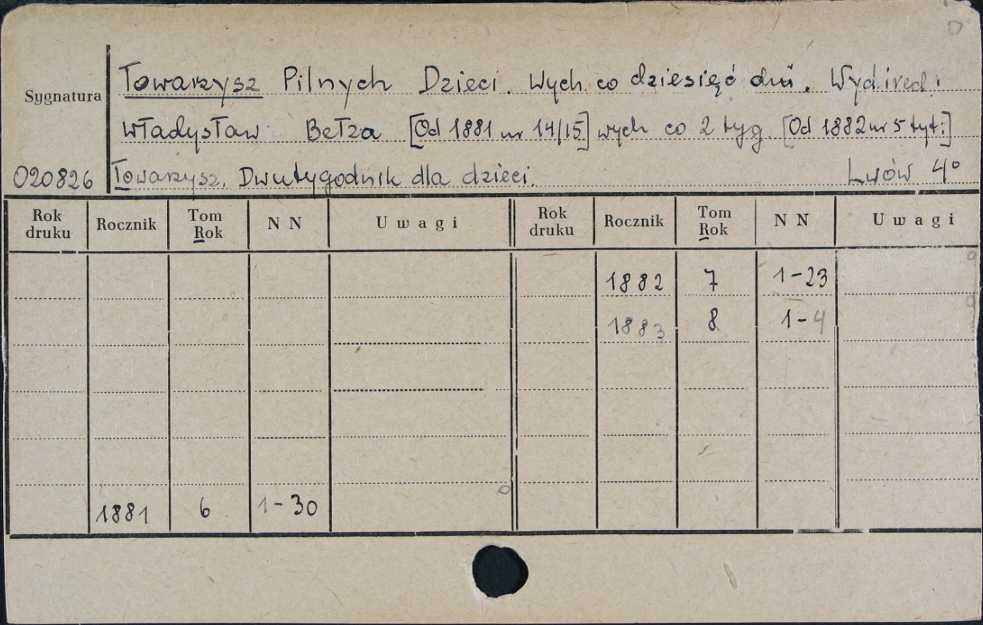 Towarzysz Pilnych Dzieci. Wych. co dziesięć dni. Wyd. i red.:
Sygnatura
Władysław Bełza [Od 1881 nr 14/15] wych co 2 tyg [Od 1882 nr 5 tyt:]
020826 Towarzysz. Dwutygodnik dla dzieci. Lwów 4°
Rok druku Rocznik Tom Rok N N Uwagi Rok druku Rocznik Tom Rok N N Uwagi
1882 7 1-23
1883 8 1-4
1881 6 1-30